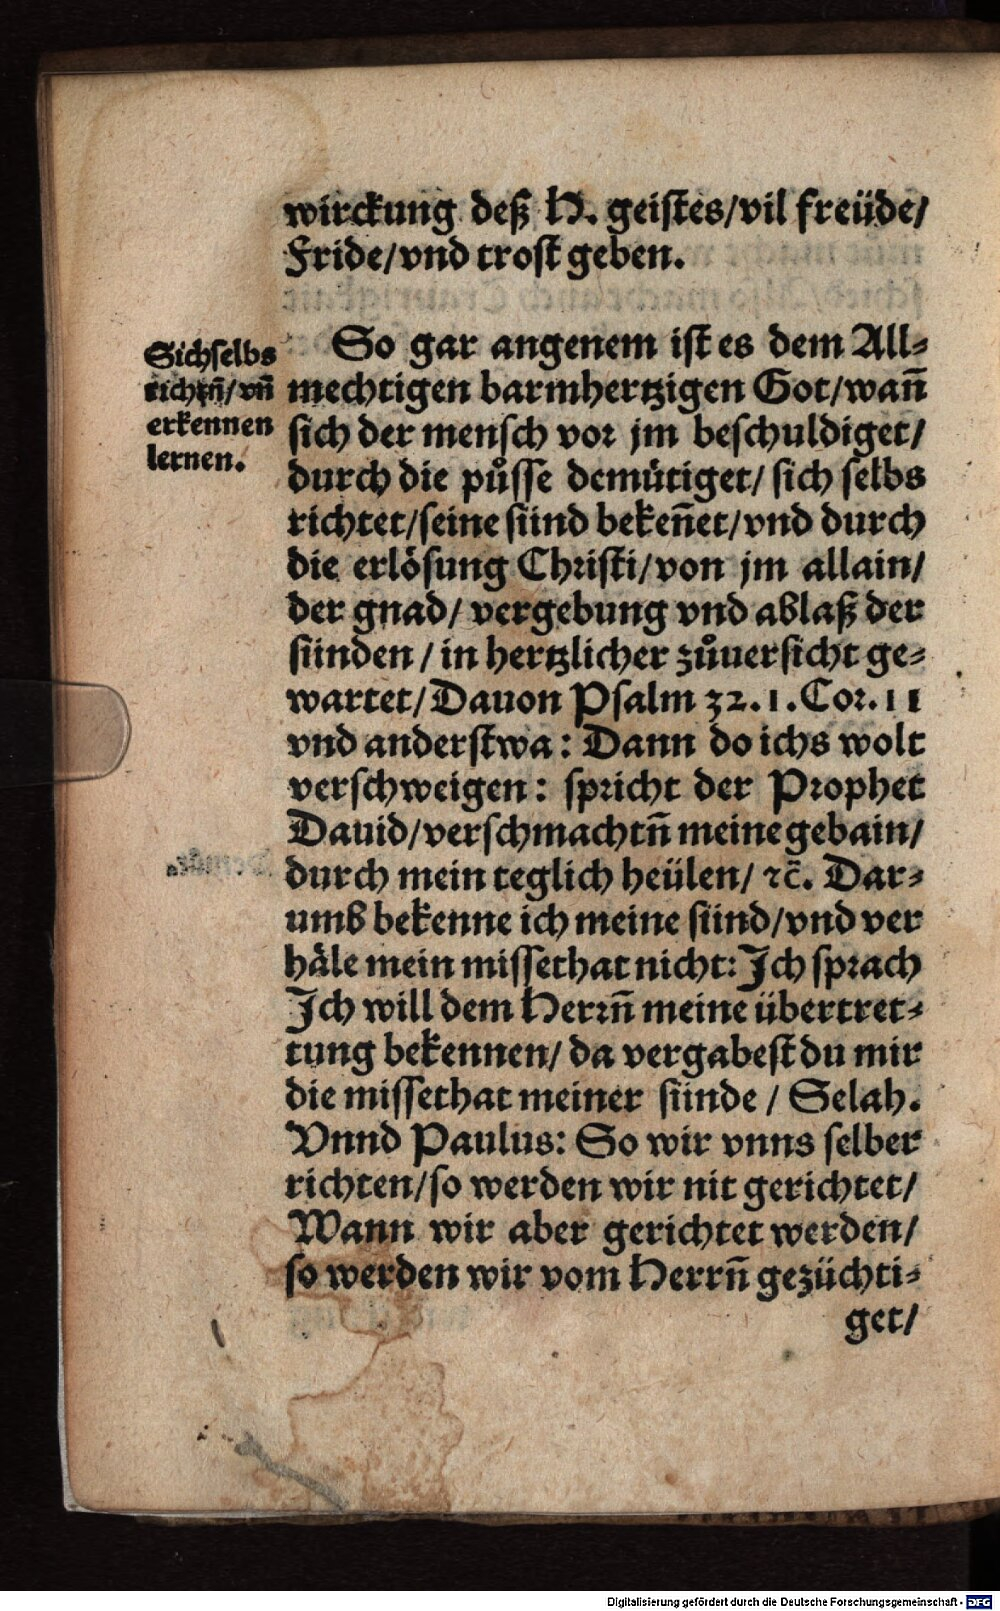 wirckung deß H. geistes/vil freüde/
Fride/vnd trost geben.
Sichselbs
richtñ/vñ
erkennen
lernen.
So gar angenem ist es dem All-
mechtigen barmhertzigen Got/wañ
sich der mensch vor jm beschuldiget/
durch die půsse demütiget/ sich selbs
richtet/seine sünd bekeñet/vnd durch
die erlösung Christi/von jm allain/
der gnad/ vergebung vnd ablaß der
sünden / in hertzlicher zůuersicht ge-
wartet/Dauon Psalm 32. 1. Cor. 11
vnd anderstwa: Dann do ichs wolt
verschweigen: spricht der Prophet
Dauid/verschmachtñ meine gebain/
durch mein teglich heülen/ ꝛc̃. Dar-
umb bekenne ich meine sünd/vnd ver
häle mein missethat nicht: Ich sprach
Ich will dem Herrñ meine übertret-
tung bekennen/ da vergabest du mir
die missethat meiner sünde / Selah.
Vnnd Paulus: So wir vnns selber
richten/so werden wir nit gerichtet/
Wann wir aber gerichtet werden/
so werden wir vom Herrñ gezüchti-
get/
Digitalisierung gefördert durch die Deutsche Forschungsgemeinschaft - DFG